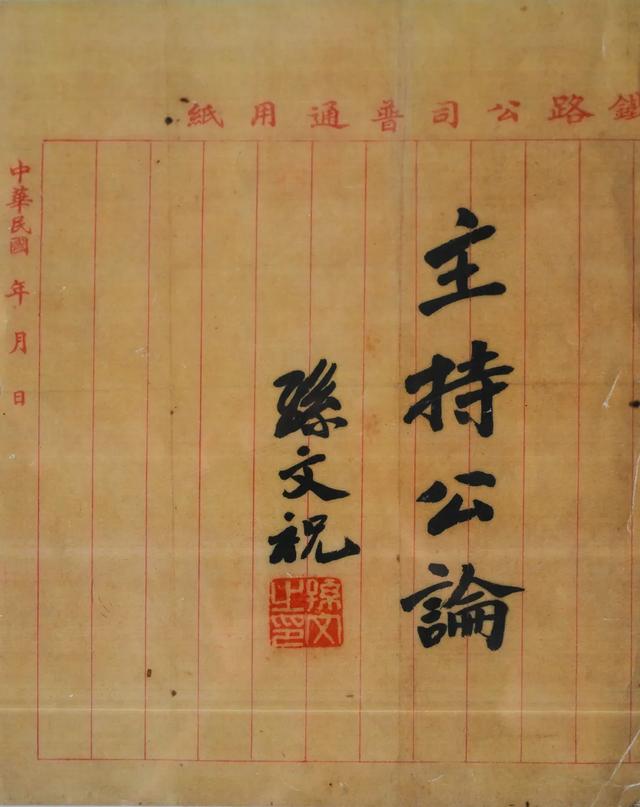 鐵路公司普通用紙
主持公論
孫文祝
孫文之印
中華民國 年 月 日